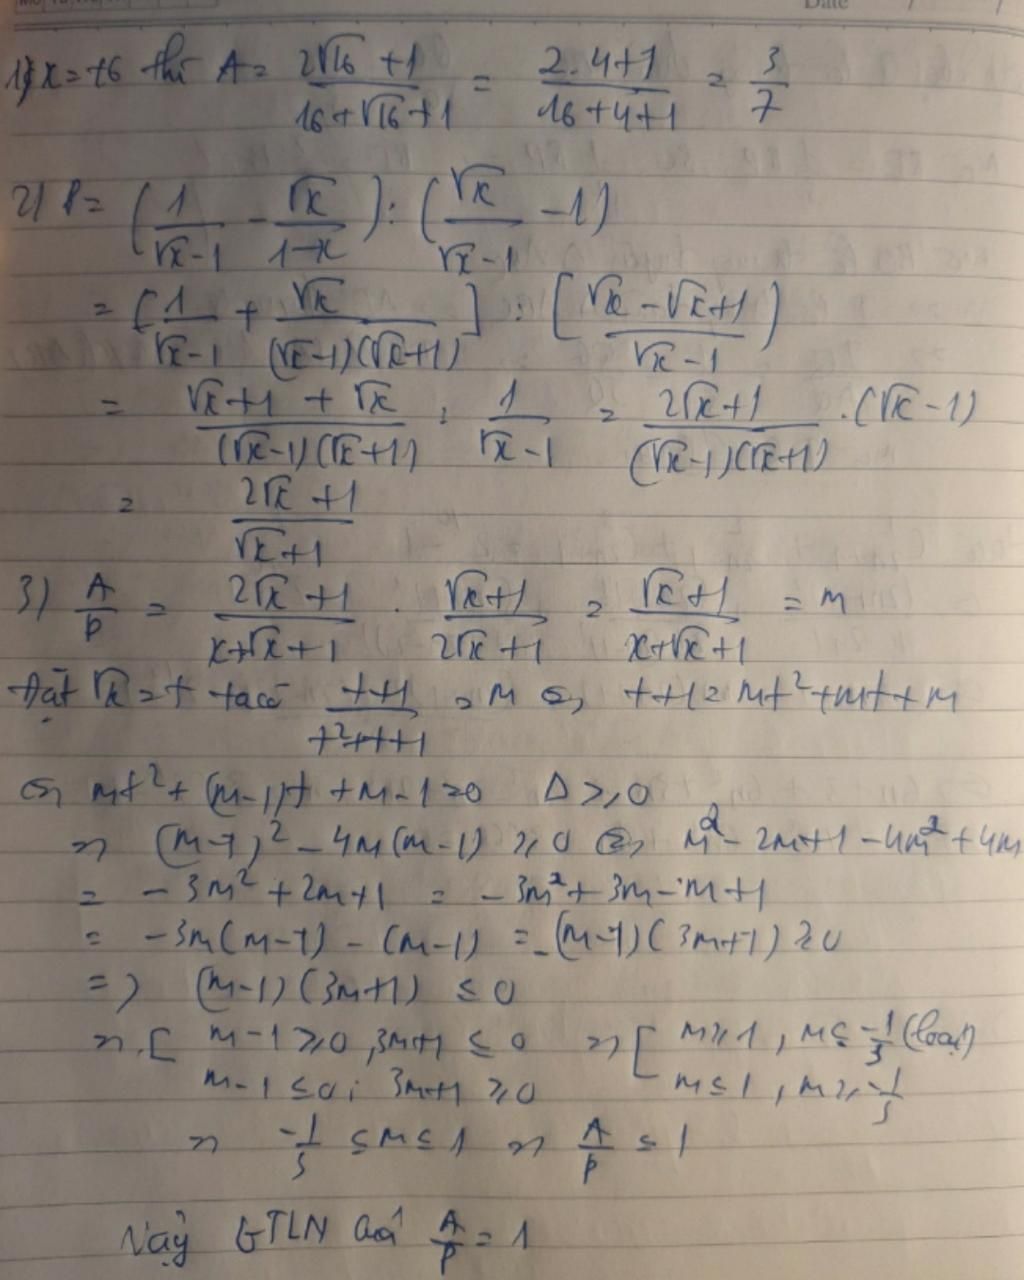 Date
1) x = 16 thì A = (2√16 + 1)/(16 + √16 + 1) = (2.4+1)/(16+4+1) = 3/7
2) P = (1/(√x-1) - √x/(1-x)) : (√x/(√x-1) - 1)
= [1/(√x-1) + √x/((√x-1)(√x+1))] : [(√x - √x+1)/(√x-1))
= (√x+1 + √x)/((√x-1)(√x+1)) : 1/(√x-1) = (2√x+1)/((√x-1)(√x+1)) . (√x-1)
= (2√x+1)/(√x+1)
3) A/P = (2√x+1)/(x+√x+1) . (√x+1)/(2√x+1) = (√x+1)/(x+√x+1) = m
Đặt √x = t ta có (t+1)/(t²+t+1) = m ⇔ t+1 = mt²+mt+m
⇔ mt² + (m-1)t + m-1 = 0 Δ ≥ 0
⇒ (m-1)² - 4m(m-1) ≥ 0 ⇔ m² - 2m+1 - 4m² + 4m
= -3m² + 2m+1 = -3m² + 3m - m + 1
= -3m(m-1) - (m-1) = -(m-1)(3m+1) ≥ 0
=> (m-1)(3m+1) ≤ 0
⇒ [ m-1 ≥ 0, 3m+1 ≤ 0 ⇒ [ m ≥ 1, m ≤ -1/3 (loại)
m-1 ≤ 0; 3m+1 ≥ 0 m ≤ 1, m ≥ -1/3
⇒ -1/3 ≤ m ≤ 1 ⇒ A/P ≤ 1
Vậy GTLN của A/P = 1